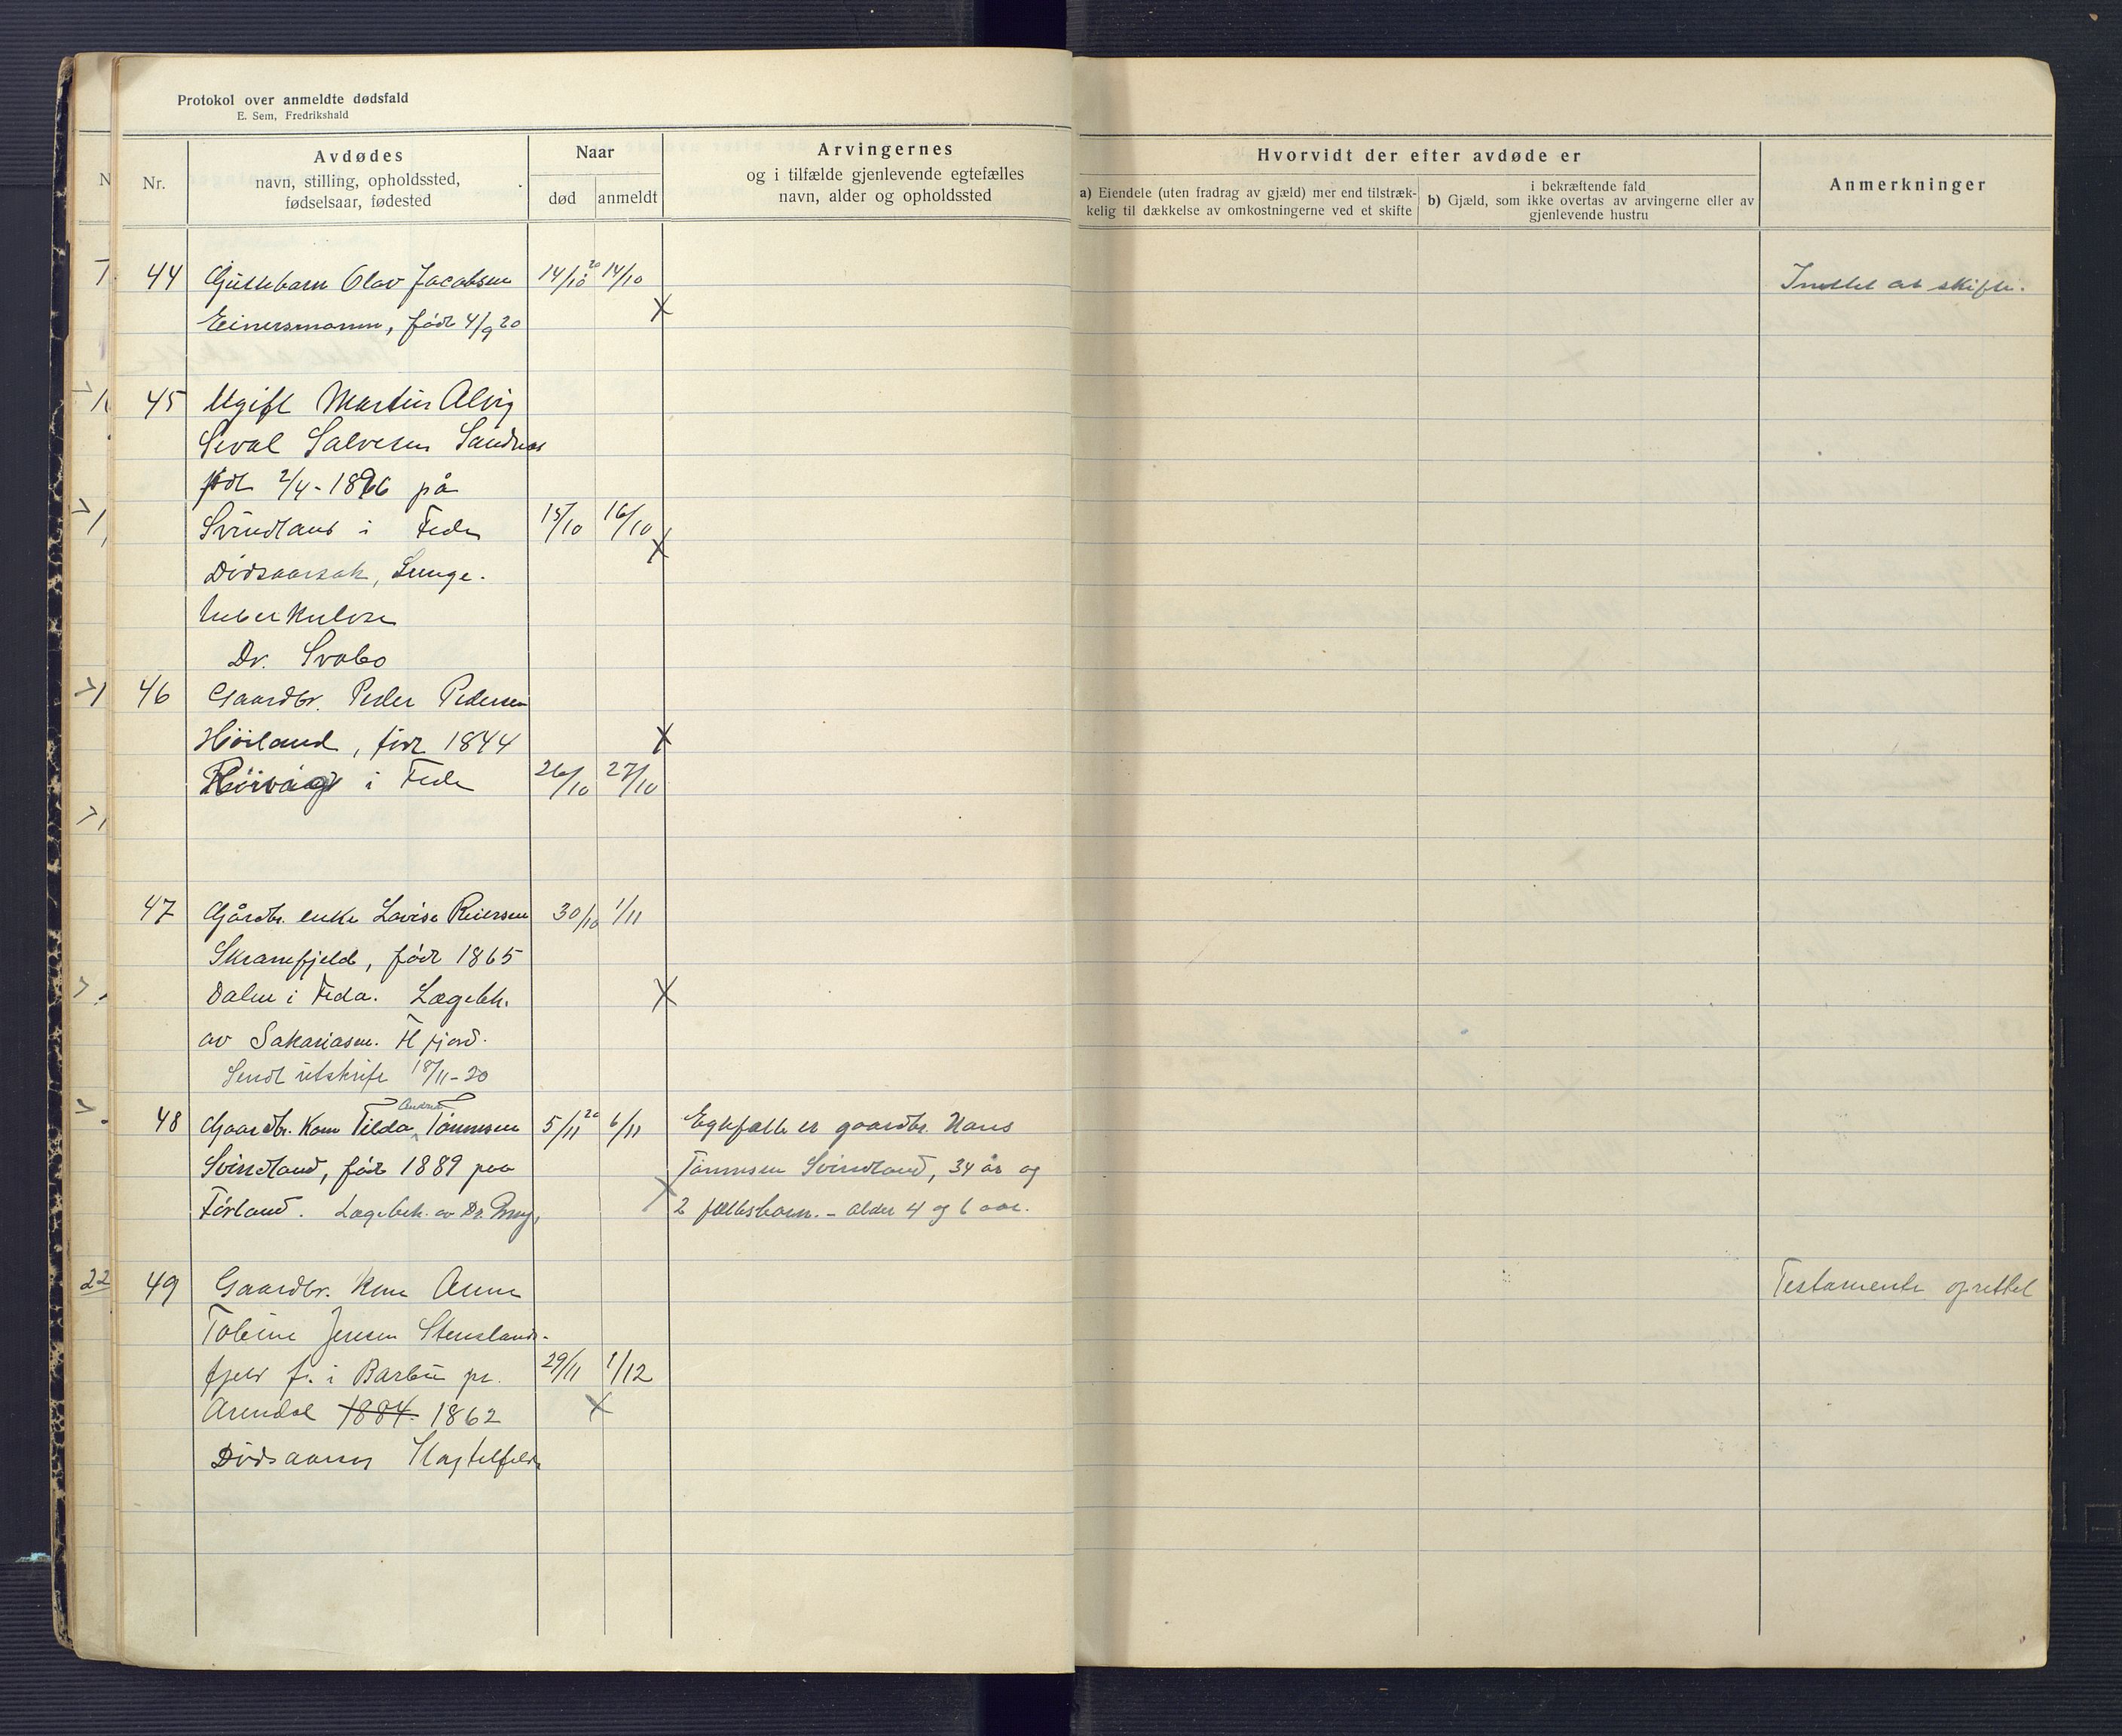 Protokol over anmeldte dødsfald
E. Sem, Fredrikshald
Nr.
Avdødes
navn, stilling, opholdssted,
fødselsaar, fødested
Naar
død
anmeldt
Arvingernes
og i tilfælde gjenlevende egtefælles
navn, alder og opholdssted
Hvorvidt der efter avdøde er
a) Eiendele (uten fradrag av gjæld) mer end tilstræk-
kelig til dækkelse av omkostningerne ved et skifte
i bekræftende fald
b) Gjæld, som ikke overtas av arvingerne eller av
gjenlevende hustru
Anmerkninger
44 Guttebarn Olav Jacobsen 14/10 20 14/10 Intet at skifte.
Einersmoen, født 4/9 20 X
45 Ugift Martin Alvig
Sival Salvesen Sandnes
født 2/4-1896 på
Svindland i Feda 15/10 16/10 X
Dødsaarsak, Lunge-
tuberkulose
Dr. Svabo
46 Gaardbr. Peder Pedersen
Höiland, född 1844 X
i Feda 26/10 27/10
47 Gårdbr. enke Lovise Reiersen 30/10 1/11
Skranefjeld, född 1865
Dalen i Feda. Lægebeh. X
av Sakariasen. Fl.fjord.
Sendt utskrift 18/11-20
Andrea
48 Gaardbr. Kone Tilda Tönnesen 5/11 20 6/11 Egtefælle er gaardbr. Hans
Svindland, född 1889 paa Tönnesen Svindland, 34 år og
Förland. Lægebeh. av Dr. X 2 fællesbarn. - alder 4 og 6 aar.
49 Gaardbr. Kone Anne Testamente oprettet
Tobine Jensen Stenslands-
fjeld f. i Barbu pr. 29/11 1/12
Arendal 1884 1862 X
Dödsaarsag Slagtilfelde
22